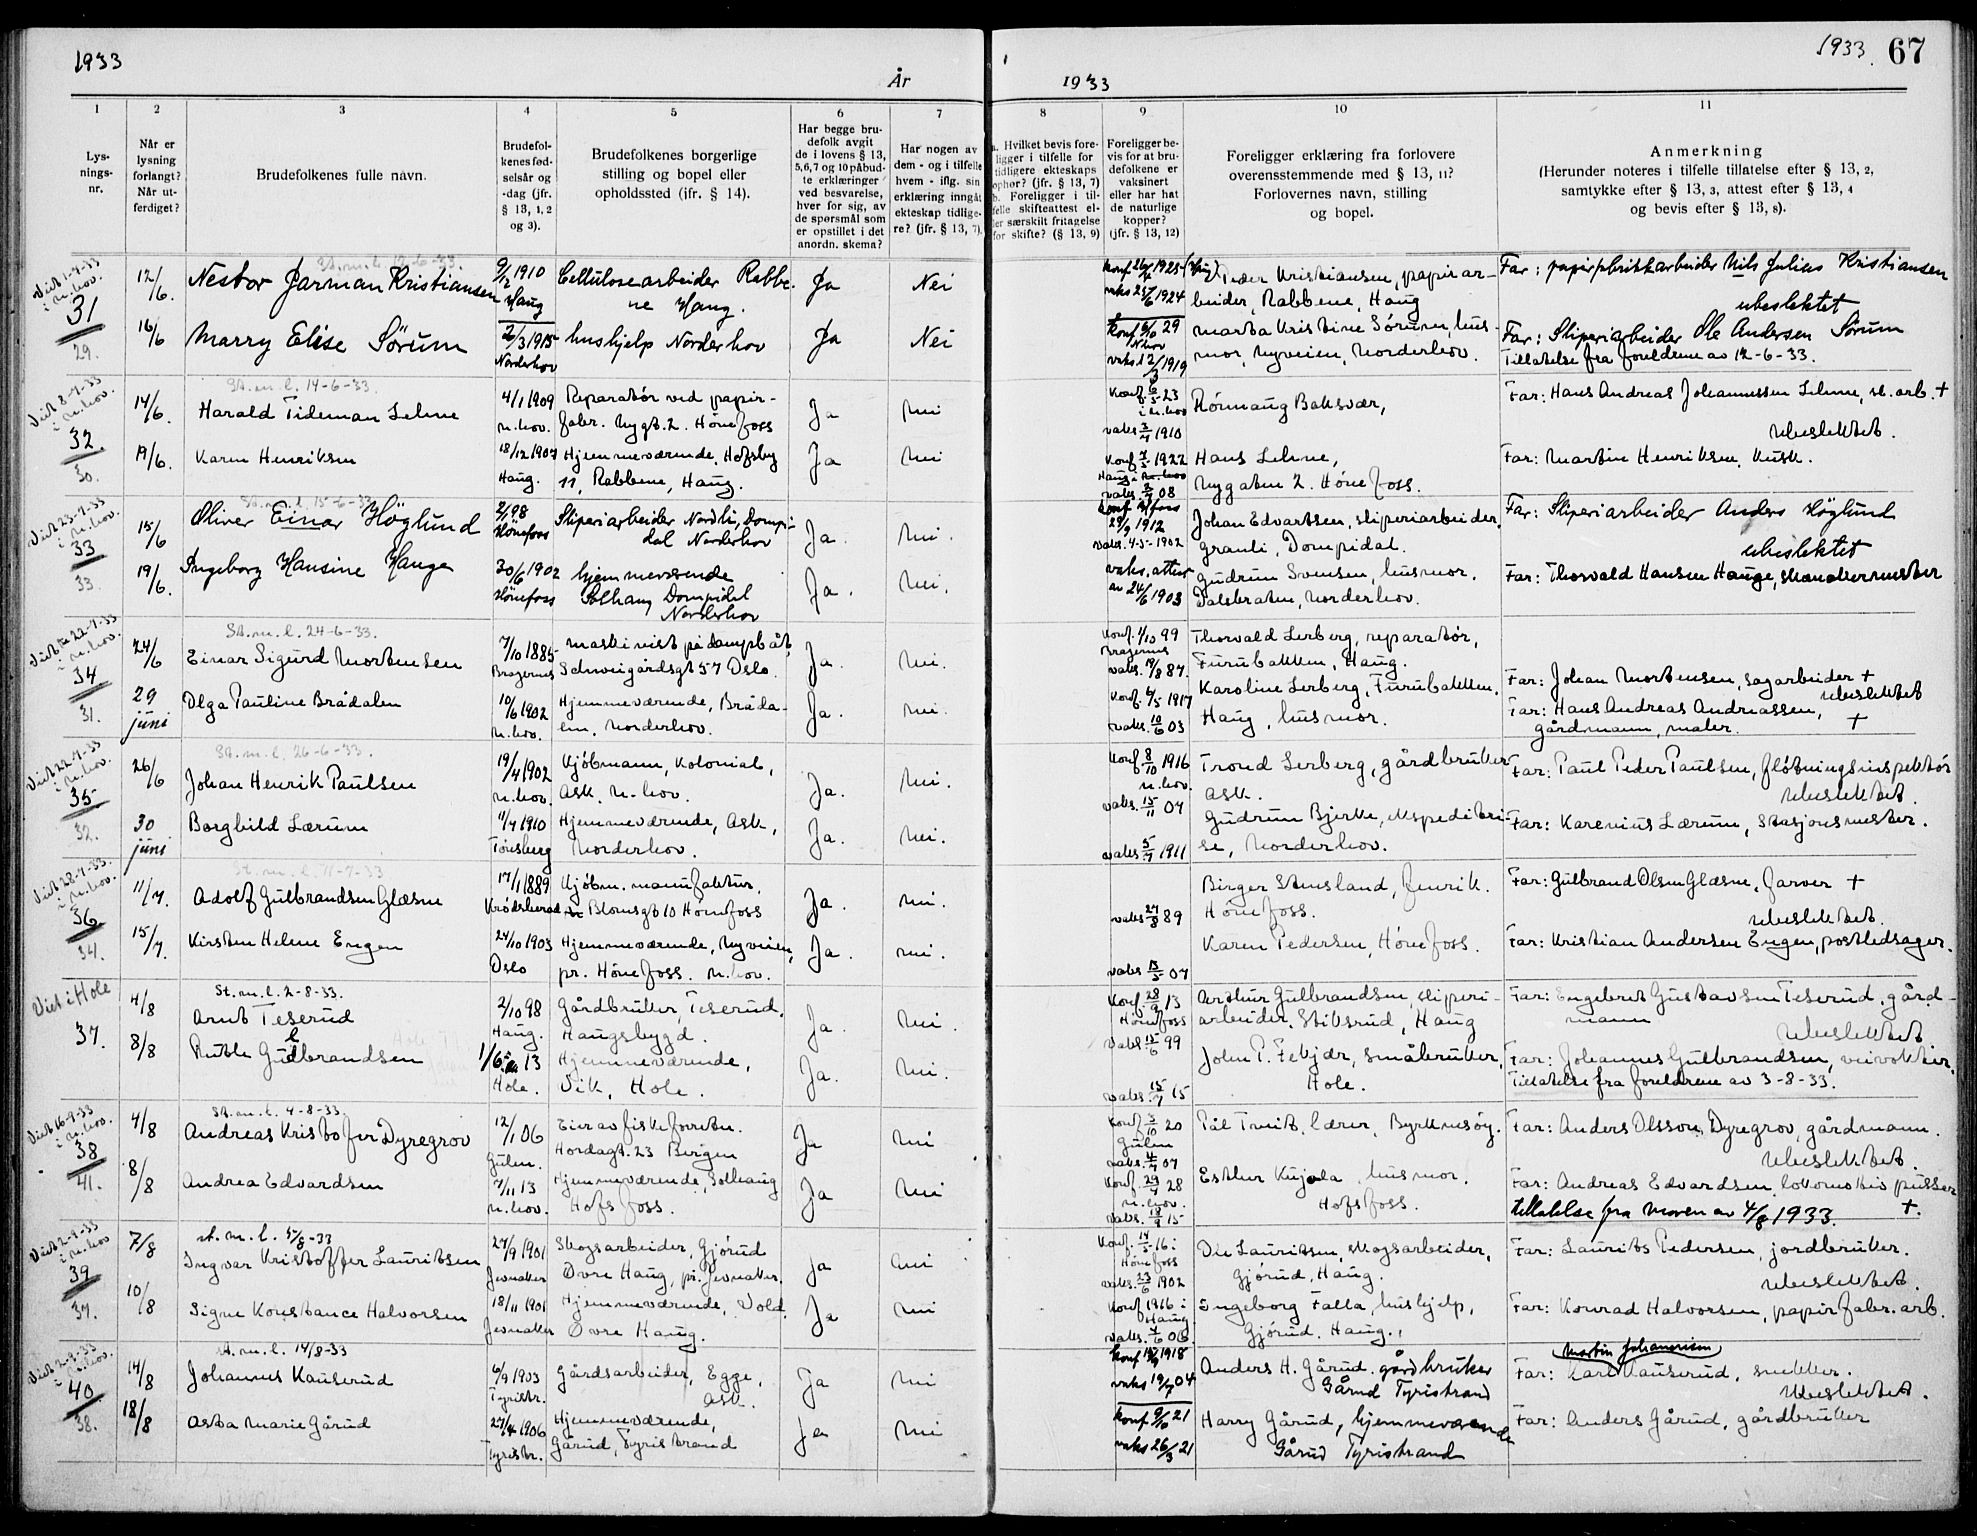 1933
År
1933
1933. 67
1
2
3
4
5
6
7
8
9
10
11
Lys-
nings-
nr.
Når er
lysning
forlangt?
Når ut-
ferdiget?
Brudefolkenes fulle navn.
Brudefol-
kenes fød-
selsår og
-dag (jfr.
§ 13, 1, 2
og 3).
Brudefolkenes borgerlige
stilling og bopel eller
opholdssted (jfr. § 14).
Har begge bru-
defolk avgit
de i lovens § 13,
5,6,7 og 10 påbud-
te erklæringer
ved besvarelse,
hver for sig, av
de spørsmål som
er opstillet i det
anordn. skema?
Har nogen av
dem - og i tilfelle
hvem - iflg. sin
erklæring inngåt
ekteskap tidlige-
re? (jfr. § 13, 7).
a. Hvilket bevis fore-
ligger i tilfelle for
tidligere ekteskaps
ophør? (jfr. § 13, 7)
b. Foreligger i til-
felle skifteattest el-
ler særskilt fritagelse
for skifte? (§ 13, 9)
Foreligger be-
vis for at bru-
defolkene er
vaksinert
eller har hat
de naturlige
kopper?
(jfr. § 13, 12)
Foreligger erklæring fra forlovere
overensstemmende med § 13, 11?
Forlovernes navn, stilling
og bopel.
Anmerkning
(Herunder noteres i tilfelle tillatelse efter § 13, 2,
samtykke efter § 13, 3, attest efter § 13, 4
og bevis efter § 13, 8).
Viet 1-7-33
i N.hov.
31
29.
St.m.l. 12-6-33.
12/6. Nestor Jarman Kristiansen 9/2 1910 Haug
Cellulosearbeider Rabbe-
ne Haug.
Ja Nei
konf. 1925
vaks 1924
Peder Kristiansen, papirar-
beider, Rabbene, Haug
Far: papirfabrikkarbeider Nils Julius Kristiansen
ubeslektet
16/6 Marry Elise Sørum 2/3 1915 Norderhov
hushjelp Norderhov
Ja Nei
konf 29
N.hov
vaks 12/3 1919
Marta Kristine Sørum, hus-
mor, Nyveien, Norderhov.
Far: Sliperiarbeider Ole Andersen Sørum
Tillatelse fra foreldrene av 12-6-33.
Viet 8-7-33
i N.hov.
32
30.
St.m.l. 14-6-33.
14/6. Harald Tideman Lehne 4/1 1909 N.hov.
Reparatør ved papir-
fabr. Nygt. 2. Hønefoss
Ja Nei
Konf. 23
i N.hov
vaks. 1910
Rønnaug Baksvær,
Far: Hans Andreas Johannessen Lehne, sl. arb. +
Ubeslektet.
19/6. Karen Henriksen 18/12 1907 Haug.
Hjemmeværende, Hofsby
11, Rabbene, Haug.
Ja Nei
Konf. 1922
vaks. 08
Hans Lehne,
Nygaten 2. Hønefoss.
Far: Martin Henriksen, kusk.
Viet 23-7-33
i N.hov.
33
33.
St.m.l. 15-6-33
15/6 Oliver Einar Höglund 98 Hönefoss
Sliperiarbeider Nordli, Dompi-
dal Norderhov
Ja. Nei.
konf Hfoss
29/9 1912
Vaks. 4-5-1902
Johan Edvartsen, sliperiarbeider,
Granli, Dompidal.
Far: Sliperiarbeider Anders Höglund
ubeslektet
19/6. Ingeborg Hansine Hauge 30/6 1902 Hönefoss
hjemmeværende
Solhaug Dompidal
Norderhov
Ja. Nei.
vaks. attest
av 24/6 1903
Gudrun Svensen, husmor.
Dalsbraten, Norderhov.
Far: Thorvald Hansen Hauge,
Viet 22-7-33
i N.hov.
34
31.
St.m.l. 24-6-33.
24/6 Einar Sigurd Mortensen 7/10 1885 Bragernes
Maskinist på dampbåt,
Schweigårdsgt 57 Oslo.
Ja. Nei.
Konf. 1/10 99
Bragernes
vaks. 9/8 87.
Thorvald Lerberg, reparatør,
Furubakken, Haug.
Far: Johan Mortensen, sagarbeider +
Ubeslektet
29 juni Olga Pauline Brådalen 10/6 1902 N.hov.
Hjemmeværende, Bråda-
len, Norderhov.
Ja. Nei.
Konf. 6/5 1917
vaks. 10/6 03
Karoline Lerberg, Furubakken,
Haug, husmor.
Far: Hans Andreas Andreassen,
gårdmann, maler. +
Viet 22-7-33
i N.hov.
35
32.
St.m.l. 26-6-33.
26/6 Johan Henrik Paulsen 19/4 1902 N.hov.
Kjøbmann, Kolonial,
Ask. N.hov.
Ja. Nei.
Konf. 8/10 1916
N.hov.
vaks. 15/11 07
Trond Lerberg, gårdbruker
Ask.
Far: Paul Peder Paulsen, fløtningsinspektør
Ubeslektet.
30 juni Borghild Lærum 11/7 1910 Tønsberg
Hjemmeværende, Ask,
Norderhov.
Ja. Nei.
vaks 5/7 1911
Gudrun Bjerke, ekspeditri-
se, Norderhov.
Far: Karenius Lærum, stasjonsmester.
Viet 28-7-33.
i N.hov.
36
34.
St.m.l. 11-7-33
11/7. Adolf Gulbrandsen Glæsne 17/1 1889 Krødsherad
Kjøbm. manufaktur,
Blomsgt 10 Hønefoss
Ja. Nei.
vaks 27/8 89
Birger Stensland, fenrik.
Hønefoss.
Far: Gulbrand Olsen Glæsne, farver +
Ubeslektet.
15/7. Kirsten Helene Engen 24/10 1903 Oslo
Hjemmeværende, Nyveien,
pr. Hønefoss. N.hov.
Ja. Nei.
vaks 13/5 07
Karen Pedersen, Hønefoss.
Far: Kristian Andersen Engen, postledsager.
Viet i Hole
37.
St.m.l. 2-8-33.
4/8 Arnt Teserud 2/10 98 Haug.
Gårdbruker, Teserud,
Haugsbygd.
Ja. Nei.
Konf. 28/9 13
Hønefoss
Vaks. 15/6 99
Arthur Gulbrandsen, sliperi-
arbeider, Stiksrud, Haug
Far: Engebret Gustavsen Teserud, gård-
mann
Ubeslektet
8/8 Ruth Gulbrandsen 13 Hole.
Hjemmeværende,
Vik, Hole.
Ja. Nei.
vaks. 15/7 15
John P. Fekjær, småbruker,
Hole.
Far: Johannes Gulbrandsen, veivokter.
Tillatelse fra foreldrene av 3-8-33.
Viet 16-9-33
i N.hov.
38
41.
St.m.l. 4-8-33.
4/8 Andreas Kristofer Dyregrov 12/1 06 Gulen.
Eier av fiskeforretn.
Hordagt. 23 Bergen
Ja Nei
Konf 3/10 20
Gulen
vaks. 4/7 07
Pål Tveit, lærer, Byrknesøy.
Far: Anders Olsson Dyregrov, gårdmann.
Ubeslektet.
8/8 Andrea Edvardsen 7/11 13 N.hov.
Hjemmeværende, Solhaug
Hofsfoss.
Ja Nei
Konf. 28
N.hov.
vaks. 18/9 15
Esther Kujala, husmor.
Hofsfoss.
Far: Andreas Edvardsen, lokomotivpusser
tillatelse fra moren av 4/8 1933. +.
Viet 2-9-33
i N.hov
39
37.
st.m.l. 5/8-33
7/8 Ingvar Kristoffer Lauritsen 27/9 1901 Jevnaker
Skogsarbeider, Gjørud
Øvre Haug, pr. Jevnaker.
Ja Nei
Konf. 14/5 16 i
Hønefoss
vaks. 23/6 1902
Ole Lauritsen, skogsarbeider,
Gjørud, Haug.
Far: Laurits Pedersen, jordbruker.
Ubeslektet.
10/8 Signe Konstance Halvorsen 18/11 1901 Jevnaker
Hjemmeværende, Vold
Øvre Haug.
Ja Nei
Konf 1916 i
Haug
vaks. 7/6 06
Ingeborg Falla, hushjelp,
Gjørud, Haug.
Far: Konrad Halvorsen, papirfabr. arb.
Viet 2-9-33
i N.hov.
40
38.
st.m.l. 14/8-33
14/8 Johannes Kauserud 6/9 1903 Tyristr.
Gårdsarbeider, Egge,
Ask.
Ja Nei
konf 1918
vaks 19/7 04
Anders H. Gårud. gårdbruker
Gårud Tyristrand
Martin Johannesen
Far: Karl Kauserud, snekker.
Ubeslektet.
18/8 Asta Marie Gårud 27/4 1906 Tyristr.
Hjemmeværende,
Gårud, Tyristrand
Ja Nei
konf 9/10 21
vaks 26/3 21
Harry Gårud, hjemmeværende
Gårud Tyristrand
Far: Anders Gårud, gårdbruker